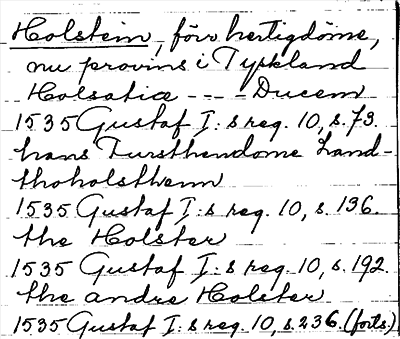 Holstein, förr hertigdöme,
nu provins i Tyskland
Holsatiæ - - - Ducem
1535 Gustaf I:s reg. 10, s. 73.
hans Fursthendome Land-
thoholsthenn
1535 Gustaf I:s reg. 10, s. 136.
the Holster
1535 Gustaf I:s reg. 10, s. 192.
the andre Holster
1535 Gustaf I:s reg. 10, s. 236. (forts.)